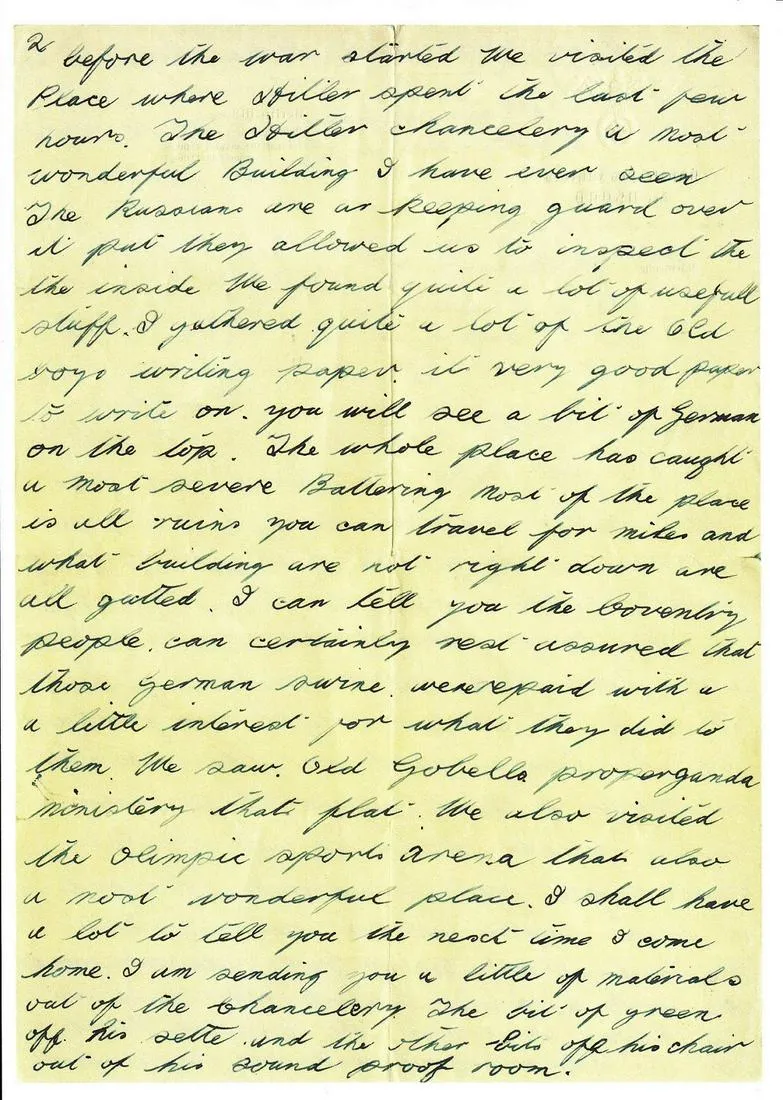 2
before the war started We visited the
Place where Hitler spent the last few
hours. The Hitler chancelery a most
wonderful Building I have ever seen
The Russians are ar keeping guard over
it put they allowed us to inspect the
the inside We found quite a lot of usefull
stuff. I gathered quite a lot of the Old
writing paper it very good paper
to write on. you will see a bit of German
on the top. The whole place has caught
a most severe Battering most of the place
is all ruins you can travel for miles and
what building are not right down are
all gutted. I can tell you the Coventry
people. can certainly rest assured that
those German swine. were repaid with a
a little interest for what they did to
them. We saw. Old Gobells properganda
ministery thats flat. We also visited
the Olimpic sports arena thats also
a most wonderful place. I shall have
a lot to tell you the next time I come
home. I am sending you a little of materials
out of the Chancelery. The bit of green
off. his sette and the other bits off his chair
out of his sound proof room.